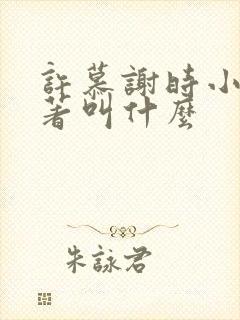 許慕謝時小
著叫什麼
朱詠君